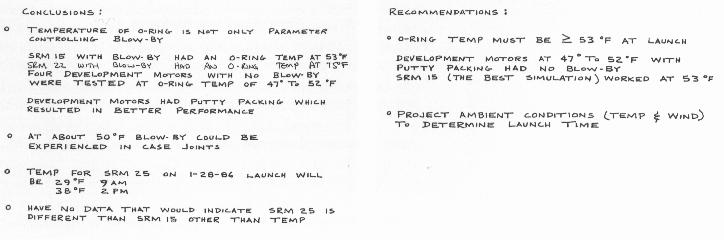 CONCLUSIONS:
○ TEMPERATURE OF O-RING IS NOT ONLY PARAMETER
CONTROLLING BLOW-BY
SRM 15 WITH BLOW-BY HAD AN O-RING TEMP AT 53°F
SRM 22 WITH BLOW-BY HAD AN O-RING TEMP AT 75°F
FOUR DEVELOPMENT MOTORS WITH NO BLOW-BY
WERE TESTED AT O-RING TEMP OF 47° TO 52°F
DEVELOPMENT MOTORS HAD PUTTY PACKING WHICH
RESULTED IN BETTER PERFORMANCE
○ AT ABOUT 50°F BLOW-BY COULD BE
EXPERIENCED IN CASE JOINTS
○ TEMP FOR SRM 25 ON 1-28-86 LAUNCH WILL
BE 29°F 9 AM
38°F 2 PM
○ HAVE NO DATA THAT WOULD INDICATE SRM 25 IS
DIFFERENT THAN SRM 15 OTHER THAN TEMP
RECOMMENDATIONS:
○ O-RING TEMP MUST BE ≥ 53°F AT LAUNCH
DEVELOPMENT MOTORS AT 47° TO 52°F WITH
PUTTY PACKING HAD NO BLOW-BY
SRM 15 (THE BEST SIMULATION) WORKED AT 53°F
○ PROJECT AMBIENT CONDITIONS (TEMP & WIND)
TO DETERMINE LAUNCH TIME